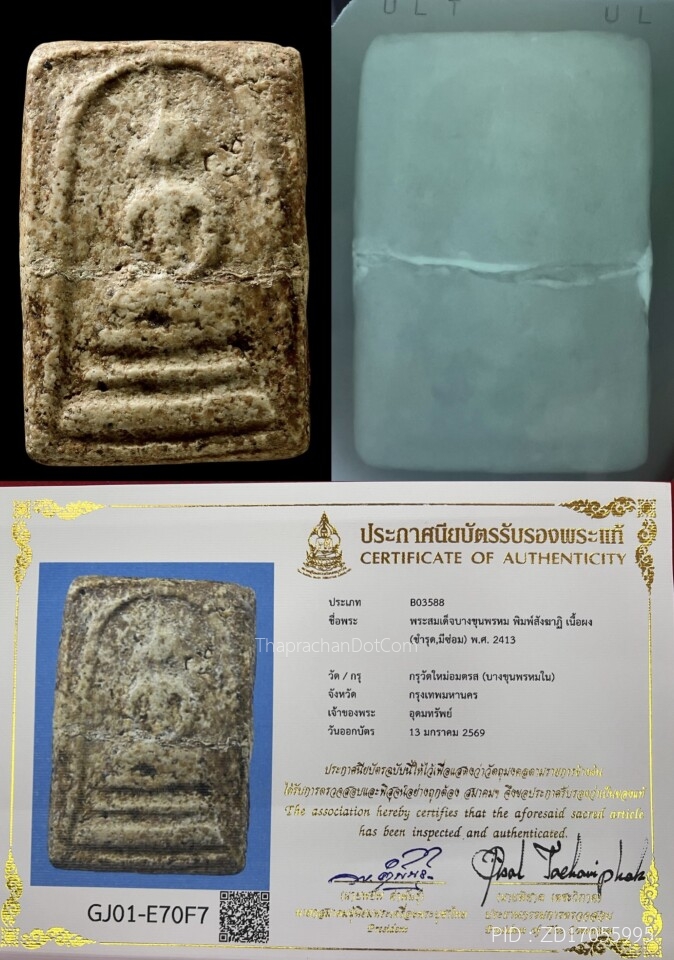 ULT UL
ประกาศนียบัตรรับรองพระแท้
CERTIFICATE OF AUTHENTICITY
ประเภท B03588
ชื่อพระ พระสมเด็จบางขุนพรหม พิมพ์สังฆาฏิ เนื้อผง
(ชำรุด,มีซ่อม) พ.ศ. 2413
ThaprachanDotCom
วัด / กรุ กรุวัดใหม่อมตรส (บางขุนพรหมใน)
จังหวัด กรุงเทพมหานคร
เจ้าของพระ อุดมทรัพย์
วันออกบัตร 13 มกราคม 2569
ประกาศนียบัตรฉบับนี้ให้ไว้เพื่อแสดงว่าวัตถุมงคลตามรายการข้างต้น
ได้รับการตรวจสอบและพิสูจน์อย่างถูกต้อง สมาคมฯ จึงขอประกาศรับรองว่าเป็นของแท้
The association hereby certifies that the aforesaid sacred article
has been inspected and authenticated.
GJ01-E70F7
President
PID : ZD17055995